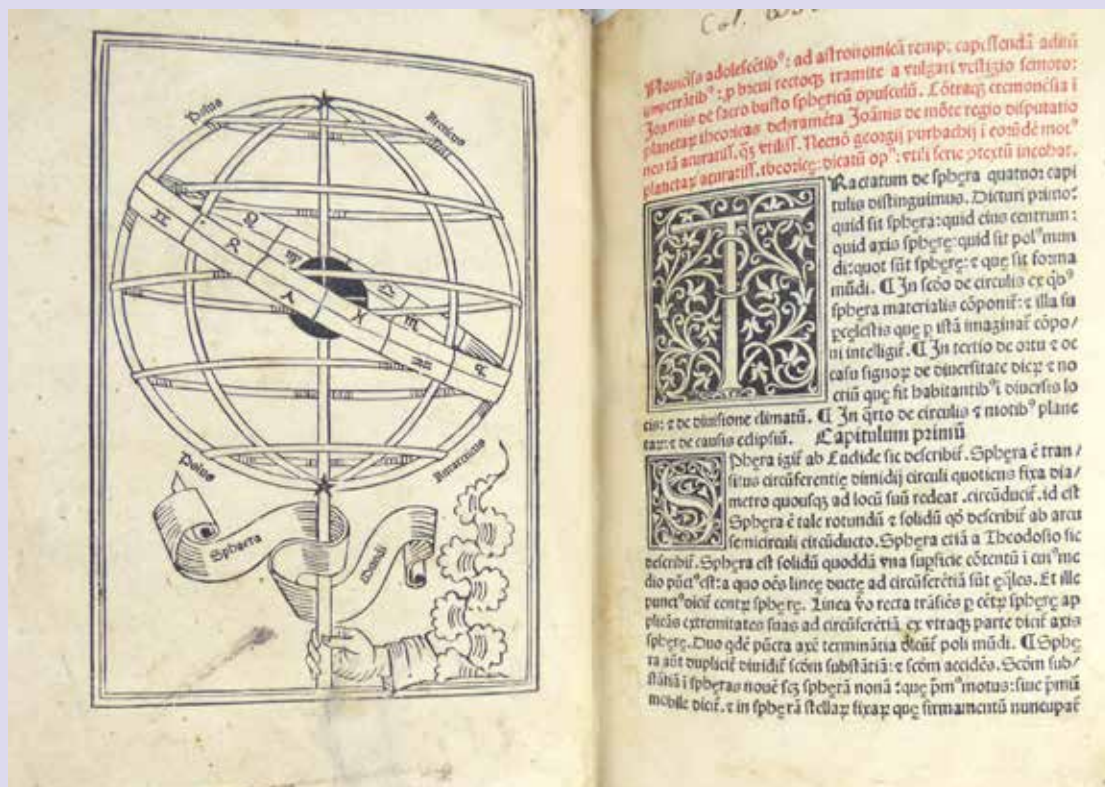 Polus
Arcticus
Polus
Antarcticus
Sphaera
Mundi
Col.
Nouicijs adolescētibꝰ: ad astronomicā remp: capessendā aditū
impetrātibꝰ: ꝓ breui rectoqꝫ tramite a vulgari vestigio semoto:
Joannis de sacro busto sphęricū opusculū. Cōtraqꝫ cremonēsia ī
planetaꝝ theoricas delyramēta Joānis de mōte regio disputatio
nes tā acuratiss. qꝫ vtiliss. Necnō georgij purbachij ī eorūdē motꝰ
planetaꝝ acuratiss. theoricę: dicatū opꝰ: vtili serie ꝯtextū incohat.
TRactatum de sphęra quatuor capi
tulis distinguimus. Dicturi primo:
quid sit sphęra: quid eius centrum:
quid axis sphęre: quid sit polꝰ mun
di: quot sūt sphęre: ⁊ que sit forma
mūdi. ¶ In scōo de circulis ex qͦbꝰ
sphęra materialis cōponit̄: ⁊ illa su
ꝑcęlestis que ꝑ istā imaginat̄ cōpo/
ni intelligit̄. ¶ In tertio de ortu ⁊ oc
casu signoꝝ ⁊ de diuersitate dieꝝ ⁊ no
ctiū que fit habitantibꝰ ī diuersis lo
cis: ⁊ de diuisione climatū. ¶ In qͣrto de circulis ⁊ motibꝰ plane
taꝝ: ⁊ de causis eclipsiū. Capitulum primū
SPhęra igit̄ ab Euclide sic describit̄. Sphęra ē tran/
situs circūferentię dimidij circuli quotiens fixa dia/
metro quousqꝫ ad locū suū redeat . circūducit̄. id est
Sphęra ē tale rotundū ⁊ solidū qḋ describit̄ ab arcu
semicirculi circūducto. Sphęra etiā a Theodosio sic
describit̄. Sphęra est solidū quoddā vna supficie cōtentū ī cuiꝰ me
dio pūctꝰ est: a quo oēs linee ducte ad circūferētiā sūt ęqͣles. Et ille
punctꝰ dicit̄ centꝝ sphęre. Linea v̄o recta trāsiēs ꝑ cētꝝ sphęrę ap
plicās extremitates suas ad circūferētiā ex vtraqꝫ parte dicit̄ axis
sphęre. Duo qͥdē pūcta axē terminātia dicūt̄ poli mūdi. ¶ Sphę
ra aūt dupliciť diuidit̄ scd̄m substātiā: ⁊ scd̄m accidēs. Scd̄m sub/
stātiā ī spheras nouē scꝫ spherā nonā: que pͥmꝰ motus: siue pͥmū
mobile dicit̄. ⁊ in spherā stellaꝝ fixaꝝ que firmamentū nuncupat̄